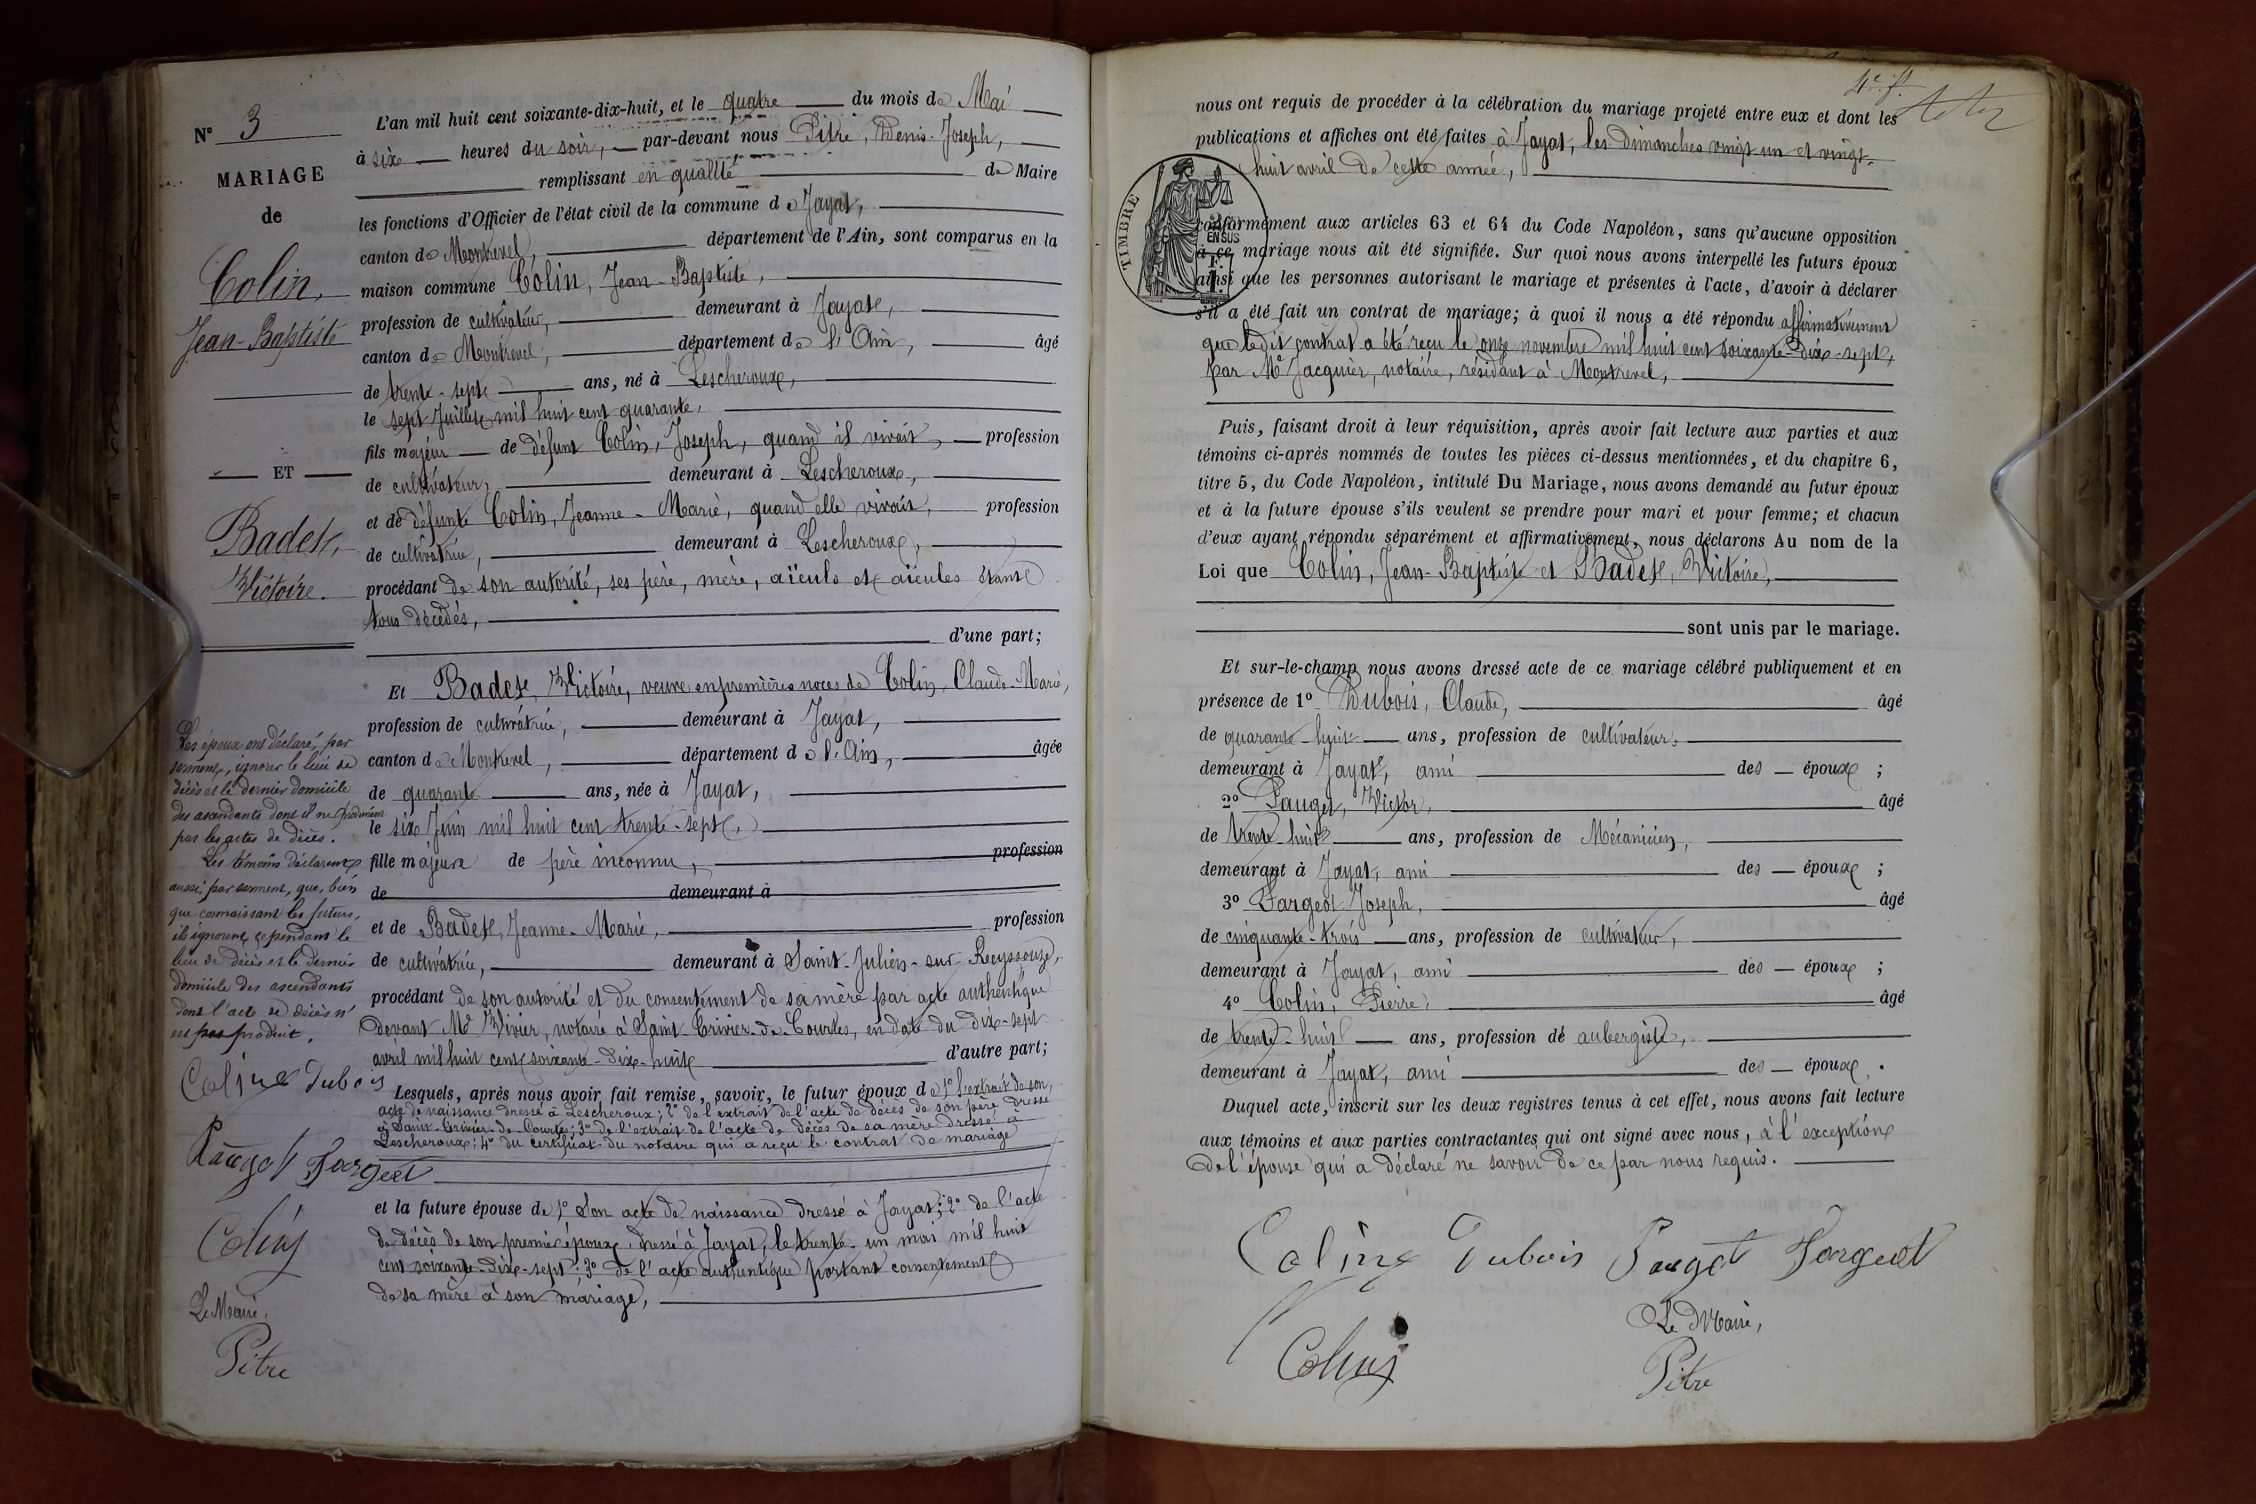 N° 3
MARIAGE
de
Colin,
Jean-Baptiste
ET
Badet,
Victoire.
Les époux ont déclaré, par
serment, ignorer le lieu de
décès et le dernier domicile
des ascendants dont il ne produisent
pas les actes de décès.
Les témoins déclarent
aussi, par serment, que, bien
que connaissant les futurs,
ils ignorent cependant le
lieu de décès et le dernier
domicile des ascendants
dont l'acte de décès n'
est pas produit.
Colin Dubois
Pauget Fargeot
Colin
Le Maire,
Pitre
L'an mil huit cent soixante-dix-huit, et le quatre du mois de Mai
à six heures du soir, par-devant nous Pitre, Denis-Joseph,
remplissant en qualité de Maire
les fonctions d'Officier de l'état civil de la commune de Jayat,
canton de Montrevel, département de l'Ain, sont comparus en la
maison commune Colin, Jean-Baptiste,
profession de cultivateur, demeurant à Jayat,
canton de Montrevel, département de l'Ain, âgé
de trente-sept ans, né à Lescheroux,
le sept Juillet mil huit cent quarante,
fils majeur de défunt Colin, Joseph, quand il vivait, profession
de cultivateur, demeurant à Lescheroux,
et de défunte Colin, Jeanne-Marie, quand elle vivait, profession
de cultivatrice, demeurant à Lescheroux,
procédant de son autorité, ses père, mère, aïeuls et aïeules étant
tous décédés,
d'une part;
Et Badet, Victoire, veuve en premières noces de Colin, Claude-Marie,
profession de cultivatrice, demeurant à Jayat,
canton de Montrevel, département de l'Ain, âgée
de quarante ans, née à Jayat,
le six Juin mil huit cent trente-sept,
fille majeure de père inconnu, profession
de demeurant à
et de Badet, Jeanne-Marie, profession
de cultivatrice, demeurant à Saint-Julien-sur-Reyssouze,
procédant de son autorité et du consentement de sa mère par acte authentique
devant Me Vivier, notaire à Saint-Trivier-de-Courtes, en date du dix-sept
avril mil huit cent soixante-dix-huit d'autre part;
Lesquels, après nous avoir fait remise, savoir, le futur époux de 1° l'extrait de son
acte de naissance dressé à Lescheroux; 2° de l'extrait de l'acte de décès de son père dressé
à Saint-Trivier-de-Courtes; 3° de l'extrait de l'acte de décès de sa mère dressé à
Lescheroux; 4° du certificat du notaire qui a reçu le contrat de mariage
et la future épouse de 1° Son acte de naissance dressé à Jayat; 2° de l'acte
de décès de son premier époux, dressé à Jayat, le trente-un mai mil huit
cent soixante-dix-sept; 3° de l'acte authentique portant consentement
de sa mère à son mariage,
nous ont requis de procéder à la célébration du mariage projeté entre eux et dont les
publications et affiches ont été faites à Jayat, les Dimanches vingt un et vingt-
huit avril de cette année,
TIMBRE
EN SUS
conformément aux articles 63 et 64 du Code Napoléon, sans qu'aucune opposition
à ce mariage nous ait été signifiée. Sur quoi nous avons interpellé les futurs époux
ainsi que les personnes autorisant le mariage et présentes à l'acte, d'avoir à déclarer
s'il a été fait un contrat de mariage; à quoi il nous a été répondu affirmativement
que ledit contrat a été reçu le onze novembre mil huit cent soixante-dix-sept,
par Me Jacquier, notaire, résidant à Montrevel,
Puis, faisant droit à leur réquisition, après avoir fait lecture aux parties et aux
témoins ci-après nommés de toutes les pièces ci-dessus mentionnées, et du chapitre 6,
titre 5, du Code Napoléon, intitulé Du Mariage, nous avons demandé au futur époux
et à la future épouse s'ils veulent se prendre pour mari et pour femme; et chacun
d'eux ayant répondu séparément et affirmativement, nous déclarons Au nom de la
Loi que Colin, Jean-Baptiste et Badet, Victoire,
sont unis par le mariage.
Et sur-le-champ nous avons dressé acte de ce mariage célébré publiquement et en
présence de 1° Dubois, Claude, âgé
de quarante-huit ans, profession de cultivateur,
demeurant à Jayat, ami des époux ;
2° Pauget, Victor, âgé
de trente-huit ans, profession de Mécanicien,
demeurant à Jayat, ami des époux ;
3° Fargeot Joseph, âgé
de cinquante-trois ans, profession de cultivateur,
demeurant à Jayat, ami des époux ;
4° Colin, Pierre, âgé
de trente-huit ans, profession de aubergiste,
demeurant à Jayat, ami des époux .
Duquel acte, inscrit sur les deux registres tenus à cet effet, nous avons fait lecture
aux témoins et aux parties contractantes qui ont signé avec nous, à l'exception
de l'épouse qui a déclaré ne savoir de ce par nous requis.
Colin Dubois Pauget Fargeot
Colin
Le Maire,
Pitre